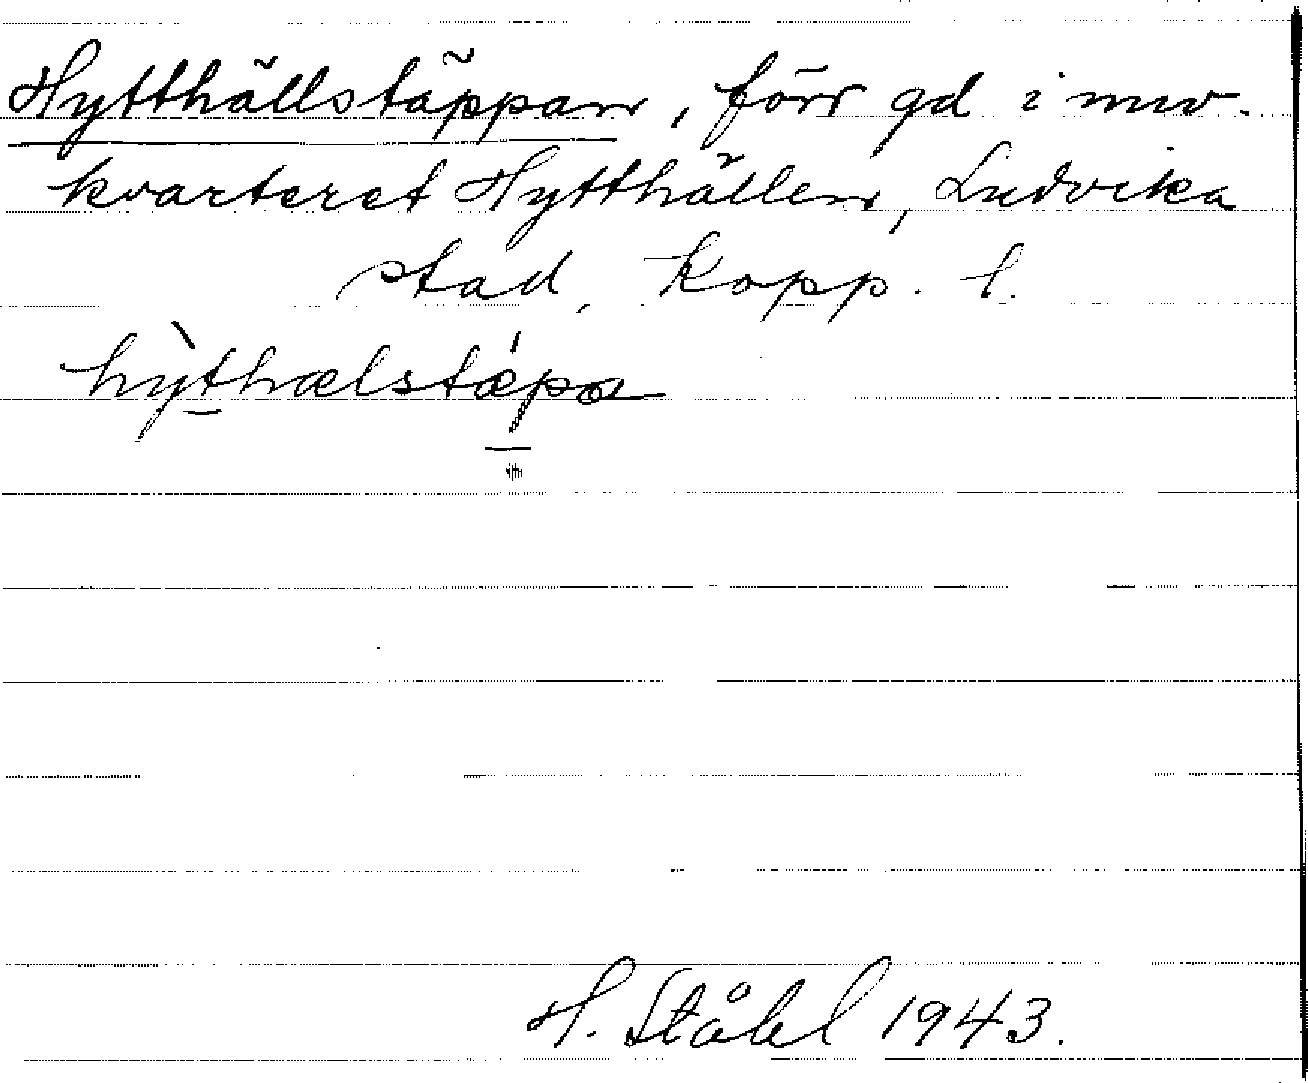 Hytthällstäppan, förr gd i nuv.
kvarteret Hytthällen, Ludvika
stad, Kopp. l.
hỳthælstǽpa
H. Ståhl 1943.